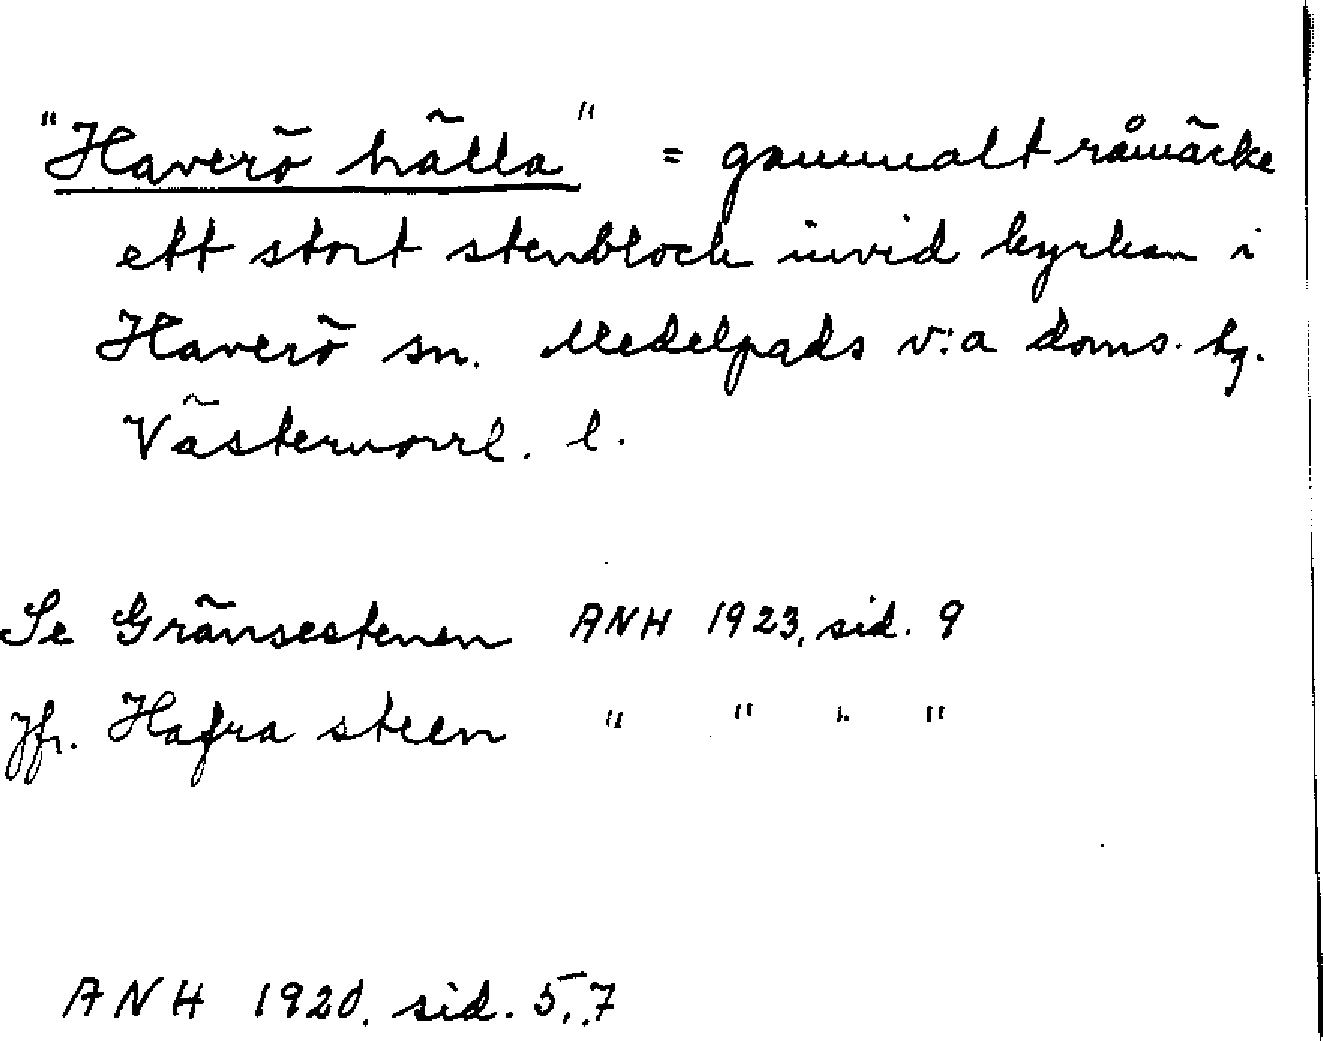 "Haverö hälla" = gammalt råmärke
ett stort stenblock invid kyrkan i
Haverö sn. Medelpads v:a doms. hg.
Västernorrl. l.
Se Gränsestenen ANH 1923, sid. 9
Jfr. Hafra steen " " " "
ANH 1920. sid. 5, 7